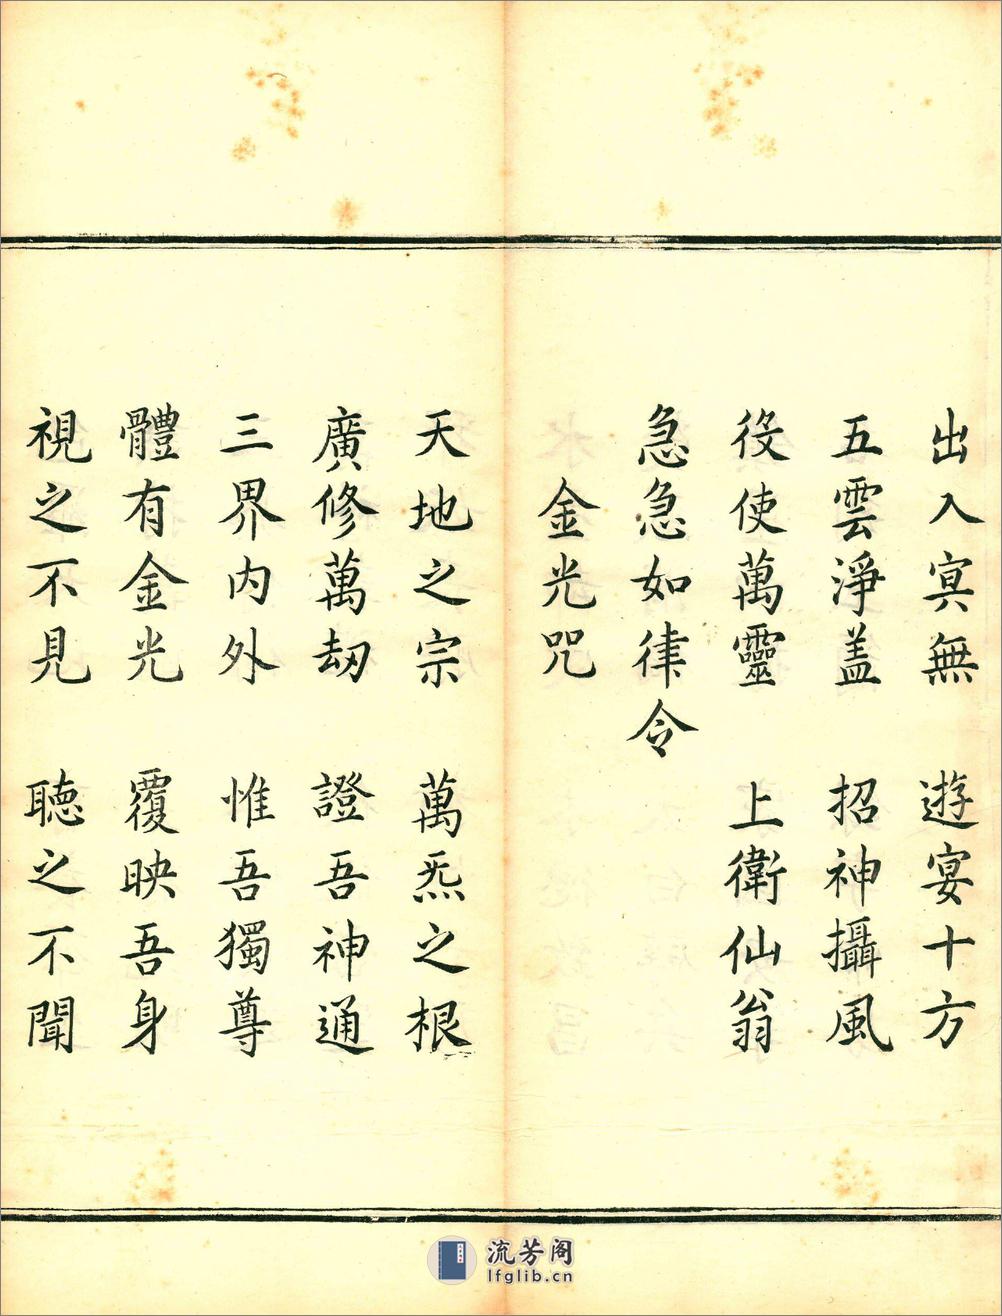 出入冥無　遊宴十方
五雲淨蓋　招神攝風
役使萬靈　上衛仙翁
急急如律令
金光咒
天地之宗　萬炁之根
廣修萬劫　證吾神通
三界内外　惟吾獨尊
體有金光　覆映吾身
視之不見　聽之不聞
流芳阁
lfglib.cn